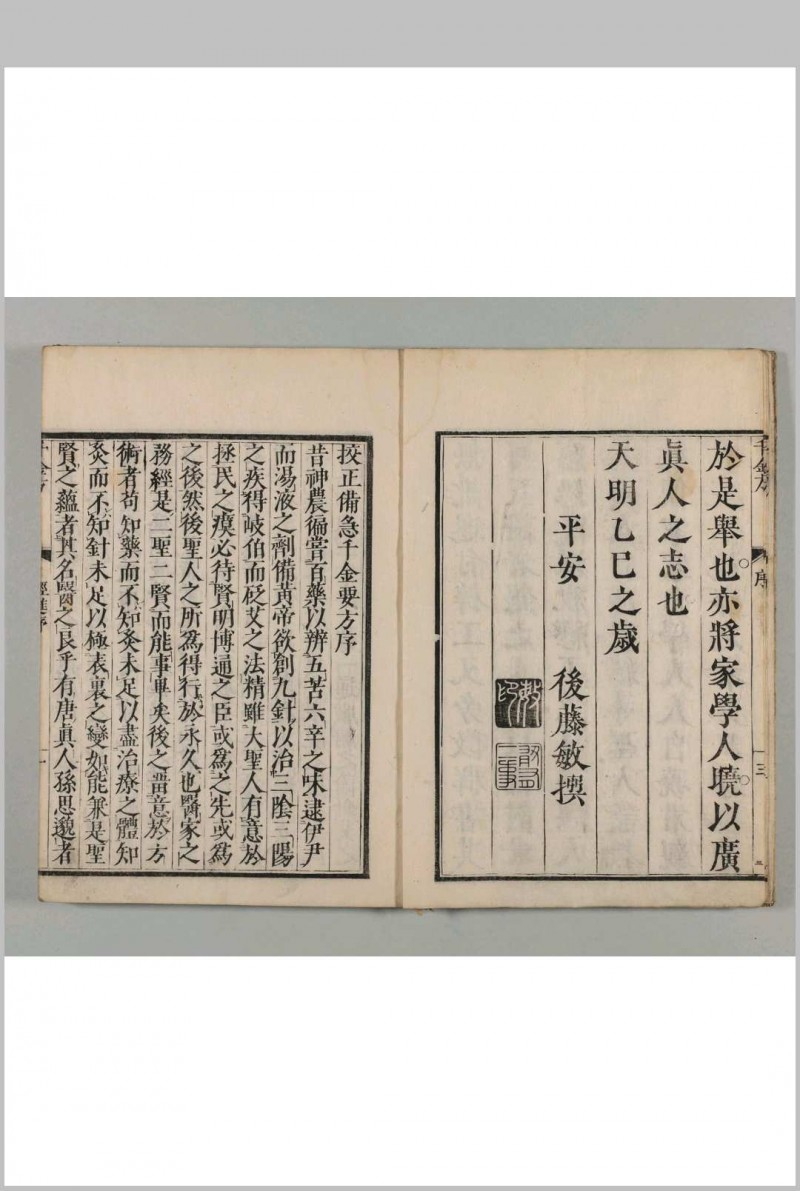 千金方
序
三
於是舉也亦將家學人曉以廣
眞人之志也
天明乙巳之歲
平安　後藤敏撰
挍正備急千金要方序
昔神農徧嘗百藥以辨五苦六辛之味逮伊尹
而湯液之劑備黃帝欲創九針以治三陰三陽
之疾得岐伯而砭艾之法精雖大聖人有意於
拯民之瘼必待賢明博通之臣或爲之先或爲
之後然後聖人之所爲得行於永久也醫家之
務經是二聖二賢而能事畢矣後之留意於方
術者苟知藥而不知灸未足以盡治療之體知
灸而不知針未足以極表裏之變如能兼是聖
賢之蘊者其名醫之良乎有唐眞人孫思邈者